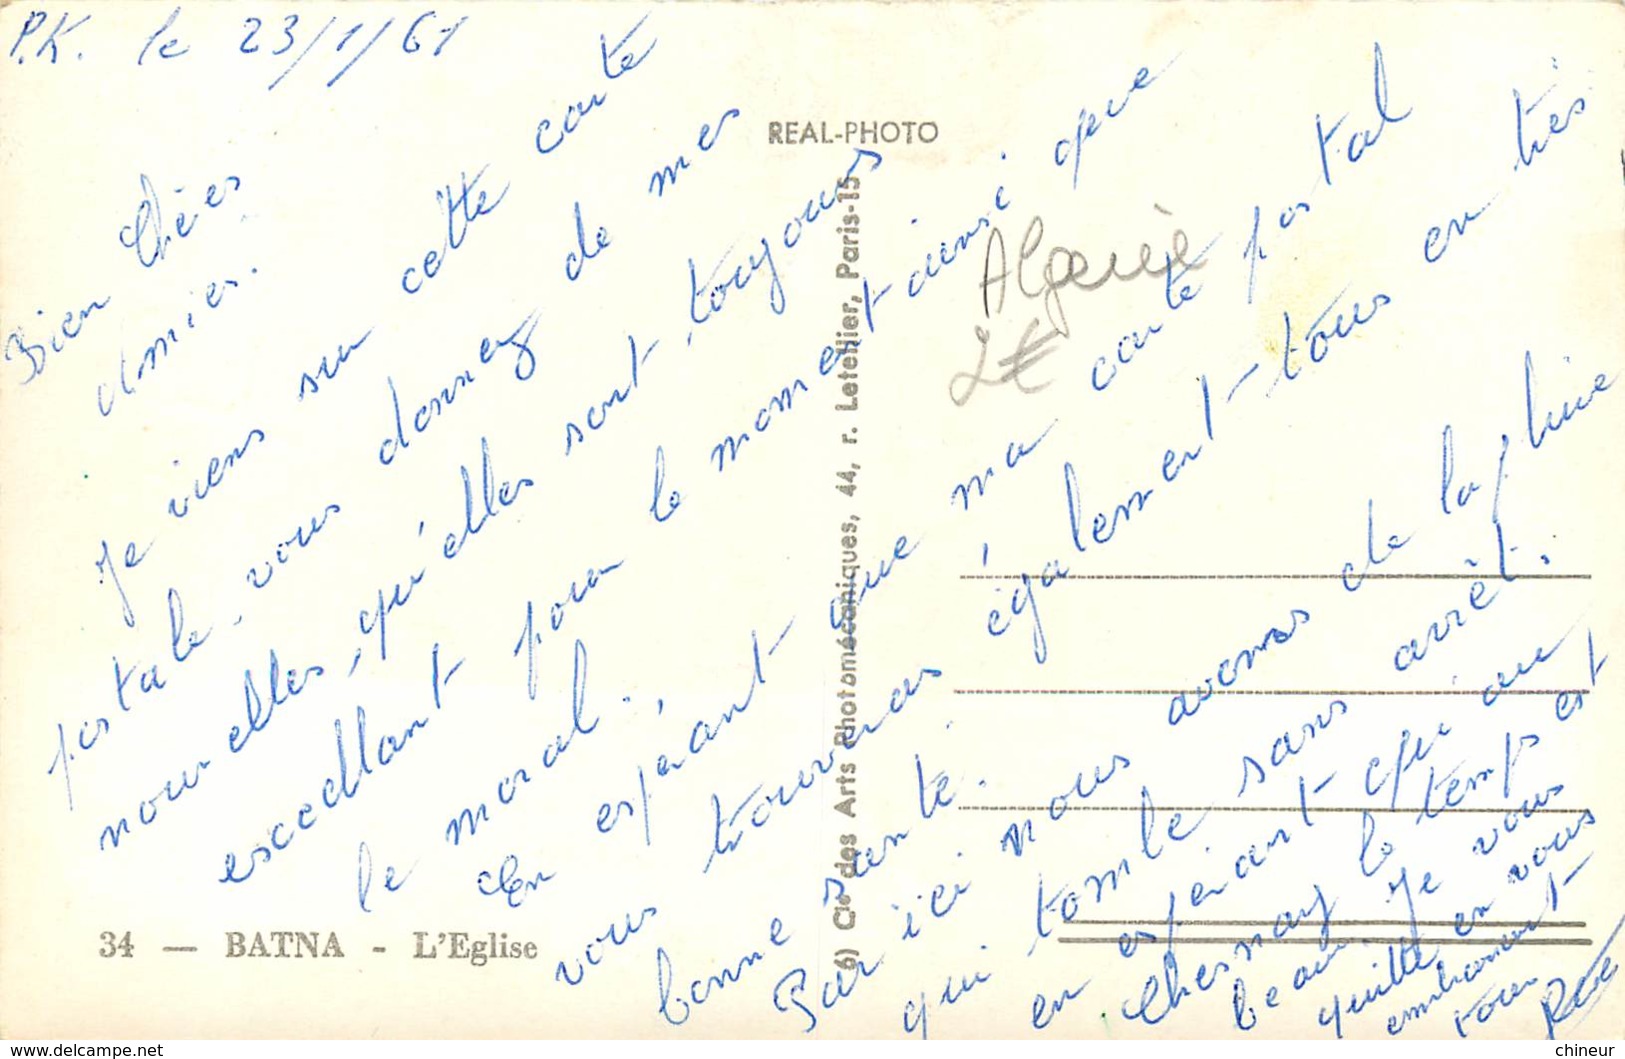 P.K. le 23/1/61
Bien Chéès
amies.
Je viens sur cette carte
postale, vous donnez de mes
nouvelles, qu'elles sont, toujours
excellant pour le moment ainsi que
le moral.
En espéant que ma carte postal
vous trouveras également tous en très
bonne sante.
Par ici nous avons de la pluie
qui tombe sans arrêt.
en espéiant qui au
Chesnay le temps est
beau. Je vous
quitte en vous
embrassant
tous
REAL-PHOTO
6) Cie des Arts Photomécaniques, 44, r. Letellier, Paris-15
Algerie
2€
34 — BATNA - L'Eglise
delcampe.net
chineur